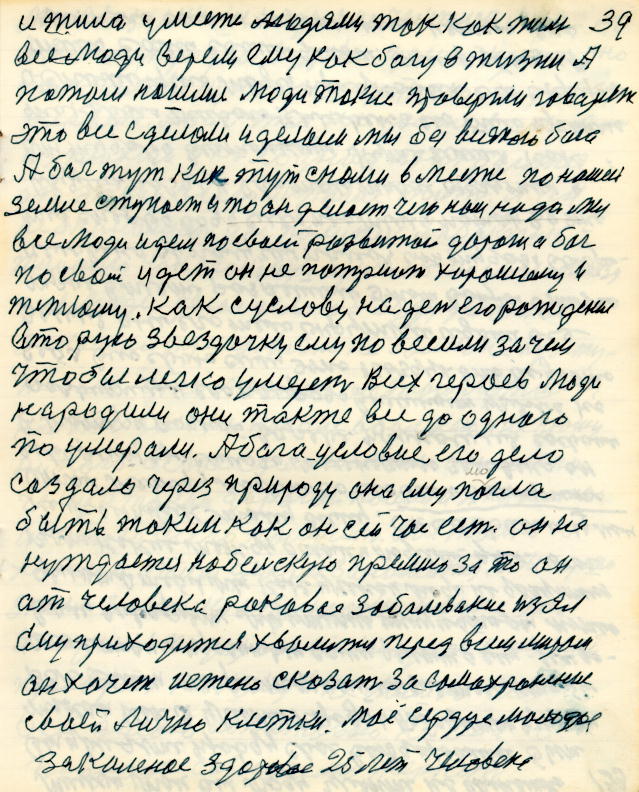 и жила умеете людями так как жил 39
все люди верели ему как богу в жизни А
потом пошли люди такие проверили говарят
это все сделали и делаем мы без всякого бога
А бог тут как тут снами в месте по нашей
земле ступает и то он делает чего нам нада мы
все люди идем по своей развитой дороги а бог
по свой идет он не потрибит хорошому и
теплому. как суслову на день его рождения
вторую звездочку ему повесили зачем
чтобы легко умереть Всех героев люди
народили они также все до одного
по умерали. А бога условие его дело
создало через природу она ему помагла
быть таким как он сейчас есть. он не
нуждается нобелскую премию за то он
от человека раковае заболевание изял
ему приходится хвалится перед всем миром
он хочет истено сказат за самахранение
своей лично клетки. маё сердце молодое
закаленое здоровое 25 лет человека